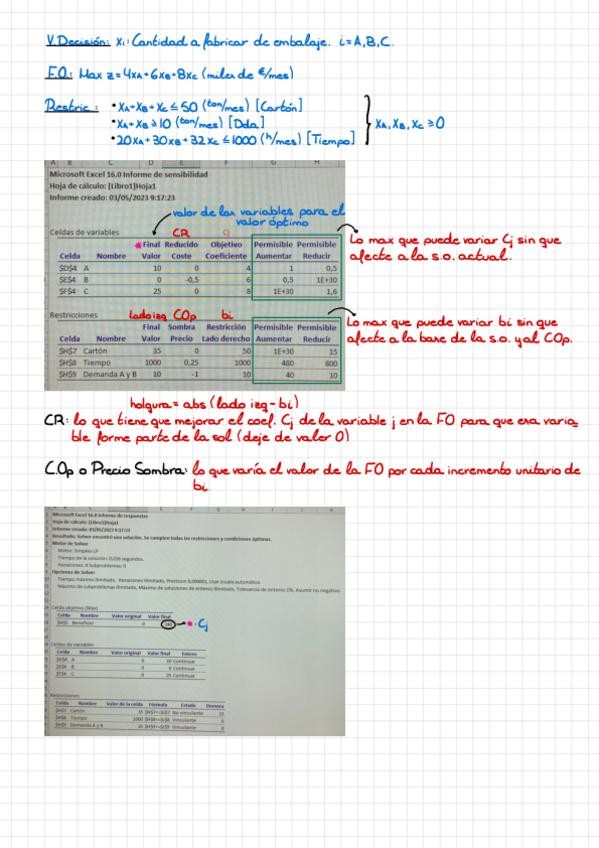 V.Decisión: Xi: Cantidad a fabricar de embalaje. i=A,B,C.
F.O: Max z=4XA+6XB+8XC (miles de €/mes)
Restric: • XA+XB+XC≤50 (ton/mes) [Cartón]
• XA+XB≥10 (ton/mes) [Dda]
• 20XA+30XB+32XC≤1000 (h/mes) [Tiempo]
XA, XB, XC ≥0
Microsoft Excel 16.0 Informe de sensibilidad
Hoja de cálculo: [Libro1]Hoja1
Informe creado: 03/05/2023 9:17:23
valor de las variables para el
valor óptimo
Celdas de variables CR
Final Reducido Objetivo Permisible Permisible
Celda Nombre Valor Coste Coeficiente Aumentar Reducir
$D$4 A 10 0 4 1 0,5
$E$4 B 0 -0,5 6 0,5 1E+30
$F$4 C 25 0 8 1E+30 1,6
Lo max que puede variar Cj sin que
afecte a la s.o. actual.
Restricciones lado izq COp bi
Final Sombra Restricción Permisible Permisible
Celda Nombre Valor Precio Lado derecho Aumentar Reducir
$H$7 Cartón 35 0 50 1E+30 15
$H$8 Tiempo 1000 0,25 1000 480 800
$H$9 Demanda A y B 10 -1 10 40 10
Lo max que puede variar bi sin que
afecte a la base de la s.o. y al COp.
holgura= abs (lado izq - bi)
CR: lo que tiene que mejorar el coef. Cj de la variable j en la FO para que esa varia
ble forme parte de la sol (deje de valer 0)
C.Op o Precio Sombra: lo que varía el valor de la FO por cada incremento unitario de
bi.
Microsoft Excel 16.0 Informe de respuestas
Hoja de cálculo: [Libro1]Hoja1
Informe creado: 03/05/2023 9:17:23
Resultado: Solver encontró una solución. Se cumplen todas las restricciones y condiciones óptimas.
Motor de Solver
Motor: Simplex LP
Tiempo de la solución: segundos.
Iteraciones: Subproblemas: 0
Opciones de Solver
Tiempo máximo Ilimitado, Iteraciones Ilimitado, Precision 0,000001, Usar escala automática
Máximo de subproblemas Ilimitado, Máximo de soluciones de enteros Ilimitado, Tolerancia de enteros 1%, Asumir no negativo
Celda objetivo (Máx)
Celda Nombre Valor original Valor final
Beneficio 0 240
• Cj
Celdas de variables
Celda Nombre Valor original Valor final Entero
$D$4 A 0 10 Continuar
$E$4 B 0 0 Continuar
$F$4 C 0 25 Continuar
Restricciones
Celda Nombre Valor de la celda Fórmula Estado Demora
$H$7 Cartón 35 $H$7<=$J$7 No vinculante 15
$H$8 Tiempo 1000 $H$8<=$J$8 Vinculante 0
$H$9 Demanda A y B 10 $H$9>=$J$9 Vinculante 0